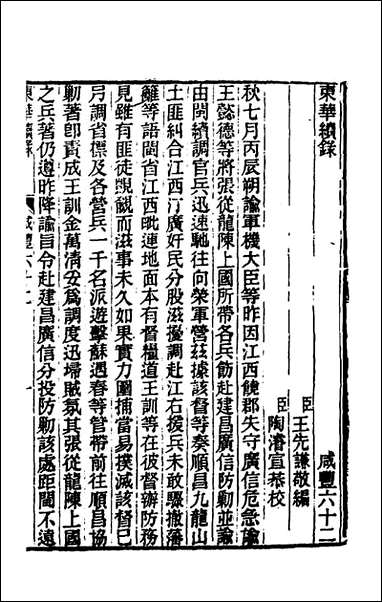 東華續錄　咸豐六十二
臣王先謙敬編
臣陶濬宣恭校
秋七月丙辰朔諭軍機大臣等昨因江西饒郡失守廣信危急諭
王懿德等將張從龍陳上國所帶各兵飭赴建昌廣信防勦並諭
由閩續調官兵迅速馳往向榮軍營茲據該督等奏順昌九龍山
土匪糾合江西汀廣奸民分股滋擾調赴江右援兵未敢驟撤藩
籬等語閩省江西毗連地面本有督糧道王訓等在彼督辦防務
見雖有匪徒覬覦而滋事未久如果實力圍捕當易撲滅該督已
另調省標及各營兵一千名派遊擊蘇遇春等管帶前往順昌協
勦著卽責成王訓金萬清妥爲調度迅埽賊氛其張從龍陳上國
之兵著仍遵昨降諭旨令赴建昌廣信分投防勦該處距閩不遠
東華續錄　咸豐六十二　一